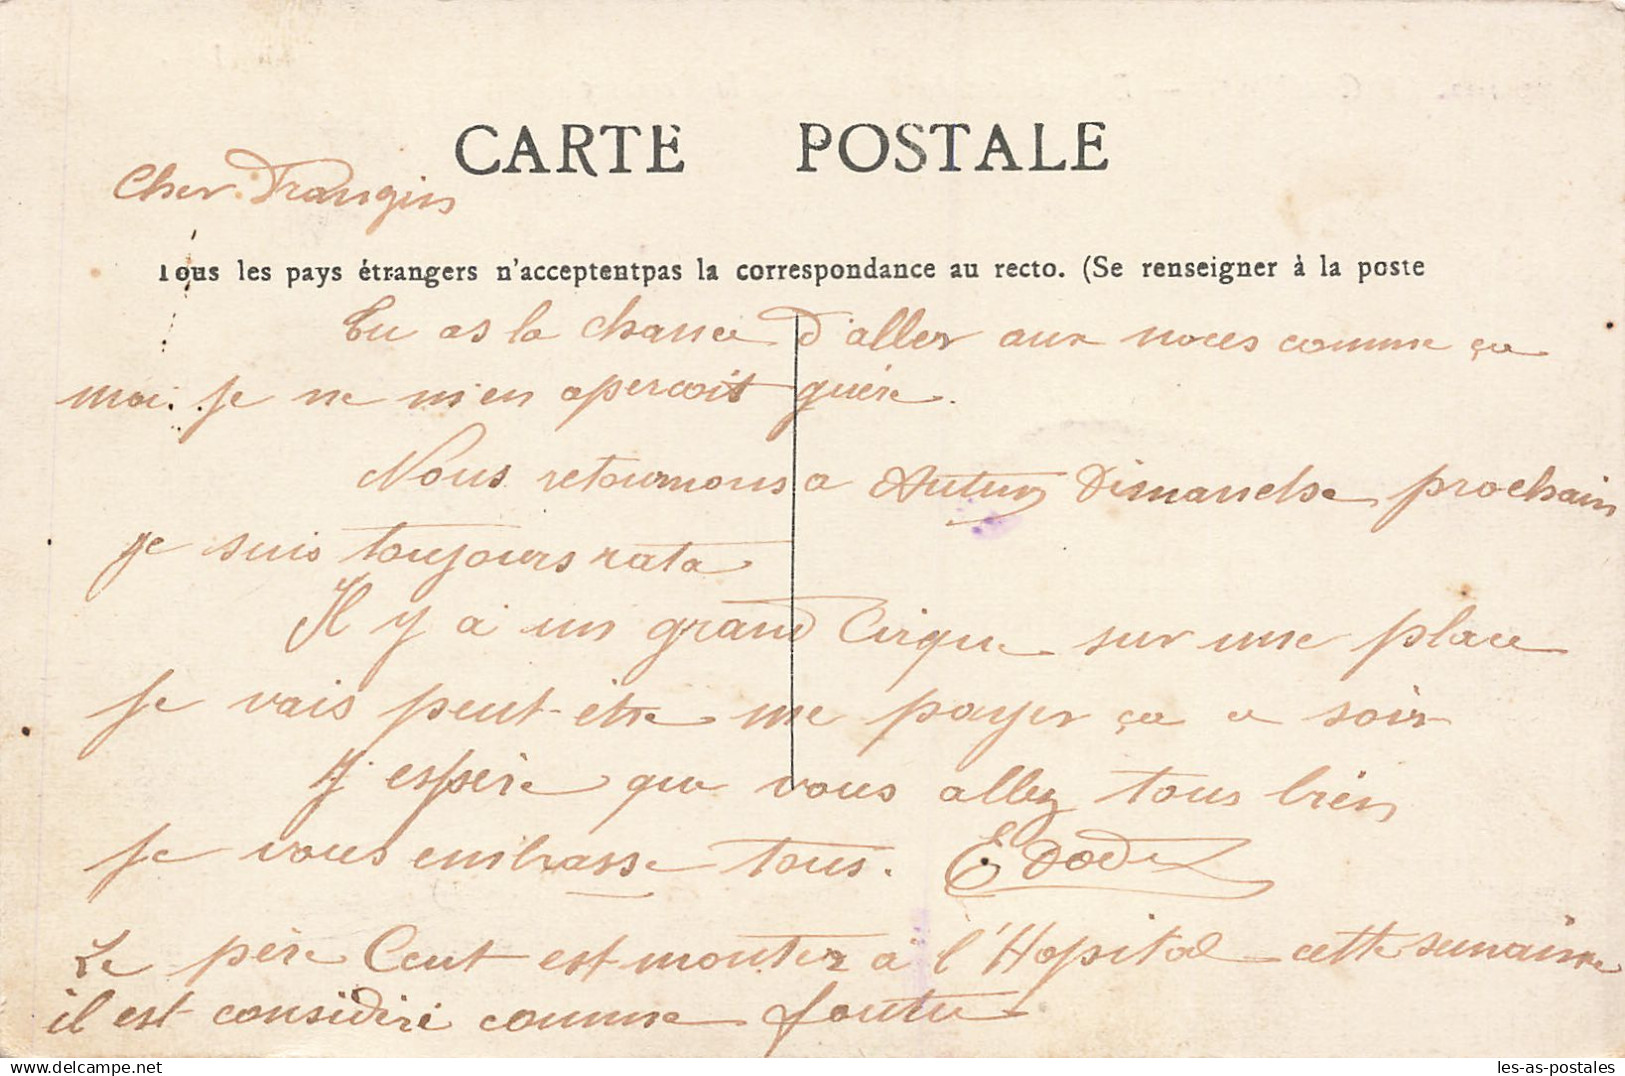 CARTE POSTALE
Cher Frangin
Tous les pays étrangers n'acceptentpas la correspondance au recto. (Se renseigner à la poste
Tu as la chance d'aller aux noces comme ça
moi je ne m'en apercoit guère.
Nous retournons a Autun Dimanche prochain
je suis toujours rata
Il y a un grand Cirque sur une place
Je vais peut-être me payer ça ce soir
J'espère que vous allez tous bien
Je vous embrasse tous. E Dodz
Le père Cout est montez à l'Hopital cette semaine
il est considéré comme foutu
les-as-postales